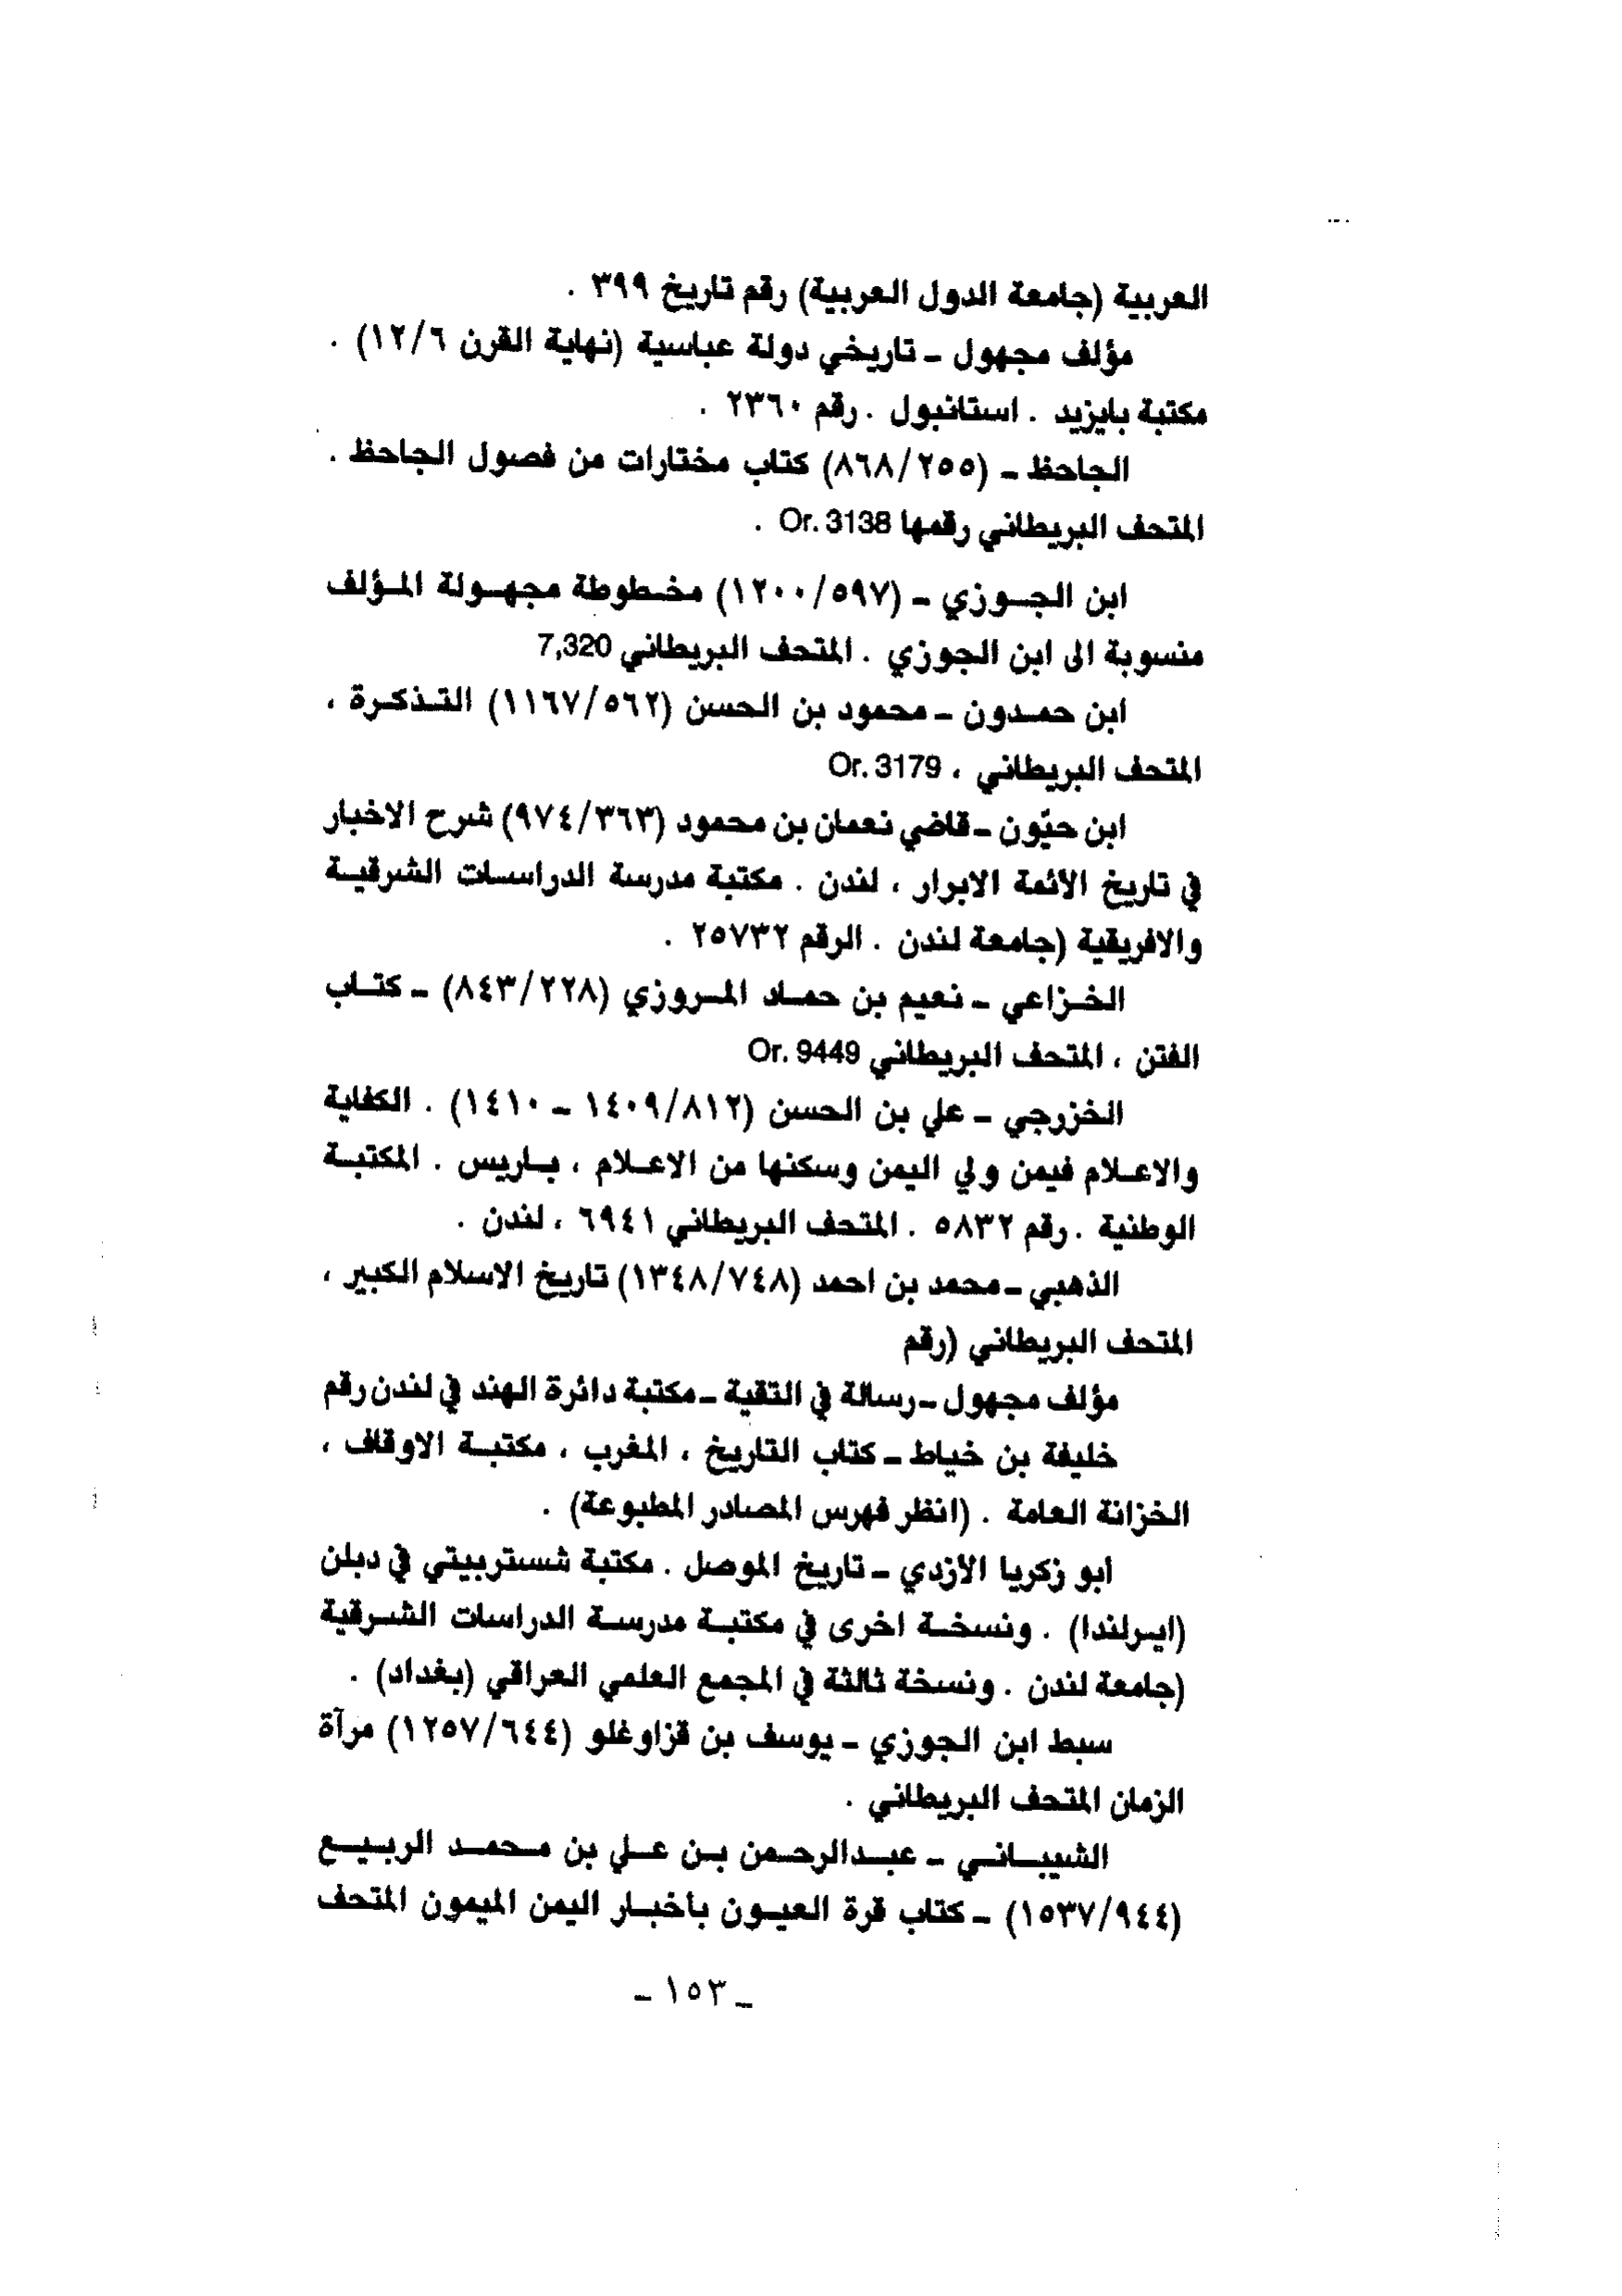 العربية (جامعة الدول العربية) رقم تاريخ ٣٩٩ .
مؤلف مجهول ـ تاريخي دولة عباسية (نهاية القرن ١٢/٦) .
مكتبة بايزيد . استانبول . رقم ٢٣٦٠ .
الجاحظ ـ (٨٦٨/٢٥٥) كتاب مختارات من فصول الجاحظ .
المتحف البريطاني رقمها Or. 3138 .
ابن الجوزي ـ (١٢٠٠/٥٩٧) مخطوطة مجهولة المؤلف
منسوبة الى ابن الجوزي . المتحف البريطاني 7,320
ابن حمدون ـ محمود بن الحسن (١١٦٧/٥٦٢) التذكرة ،
المتحف البريطاني ، Or. 3179
ابن حيّون ـ قاضي نعمان بن محمود (٩٧٤/٣٦٣) شرح الاخبار
في تاريخ الأئمة الابرار ، لندن . مكتبة مدرسة الدراسات الشرقية
والافريقية (جامعة لندن . الرقم ٢٥٧٣٢ .
الخزاعي ـ نعيم بن حماد المروزي (٨٤٣/٢٢٨) ـ كتاب
الفتن ، المتحف البريطاني Or. 9449
الخزرجي ـ علي بن الحسن (١٤٠٩/٨١٢ ـ ١٤١٠) . الكفاية
والاعلام فيمن ولي اليمن وسكنها من الاعلام ، باريس . المكتبة
الوطنية . رقم ٥٨٣٢ . المتحف البريطاني ٦٩٤١ ، لندن .
الذهبي ـ محمد بن احمد (١٣٤٨/٧٤٨) تاريخ الاسلام الكبير ،
المتحف البريطاني (رقم
مؤلف مجهول ـ رسالة في التقية ـ مكتبة دائرة الهند في لندن رقم
خليفة بن خياط ـ كتاب التاريخ ، المغرب ، مكتبة الاوقاف ،
الخزانة العامة . (انظر فهرس المصادر المطبوعة) .
ابو زكريا الأزدي ـ تاريخ الموصل . مكتبة شستربيتي في دبلن
(ايرلندا) . ونسخة اخرى في مكتبة مدرسة الدراسات الشرقية
(جامعة لندن . ونسخة ثالثة في المجمع العلمي العراقي (بغداد) .
سبط ابن الجوزي ـ يوسف بن قزاوغلو (١٢٥٧/٦٤٤) مرآة
الزمان المتحف البريطاني .
الشيباني ـ عبدالرحمن بن علي بن محمد الربيع
(١٥٣٧/٩٤٤) ـ كتاب قرة العيون باخبار اليمن الميمون المتحف
ـ ١٥٣ ـ